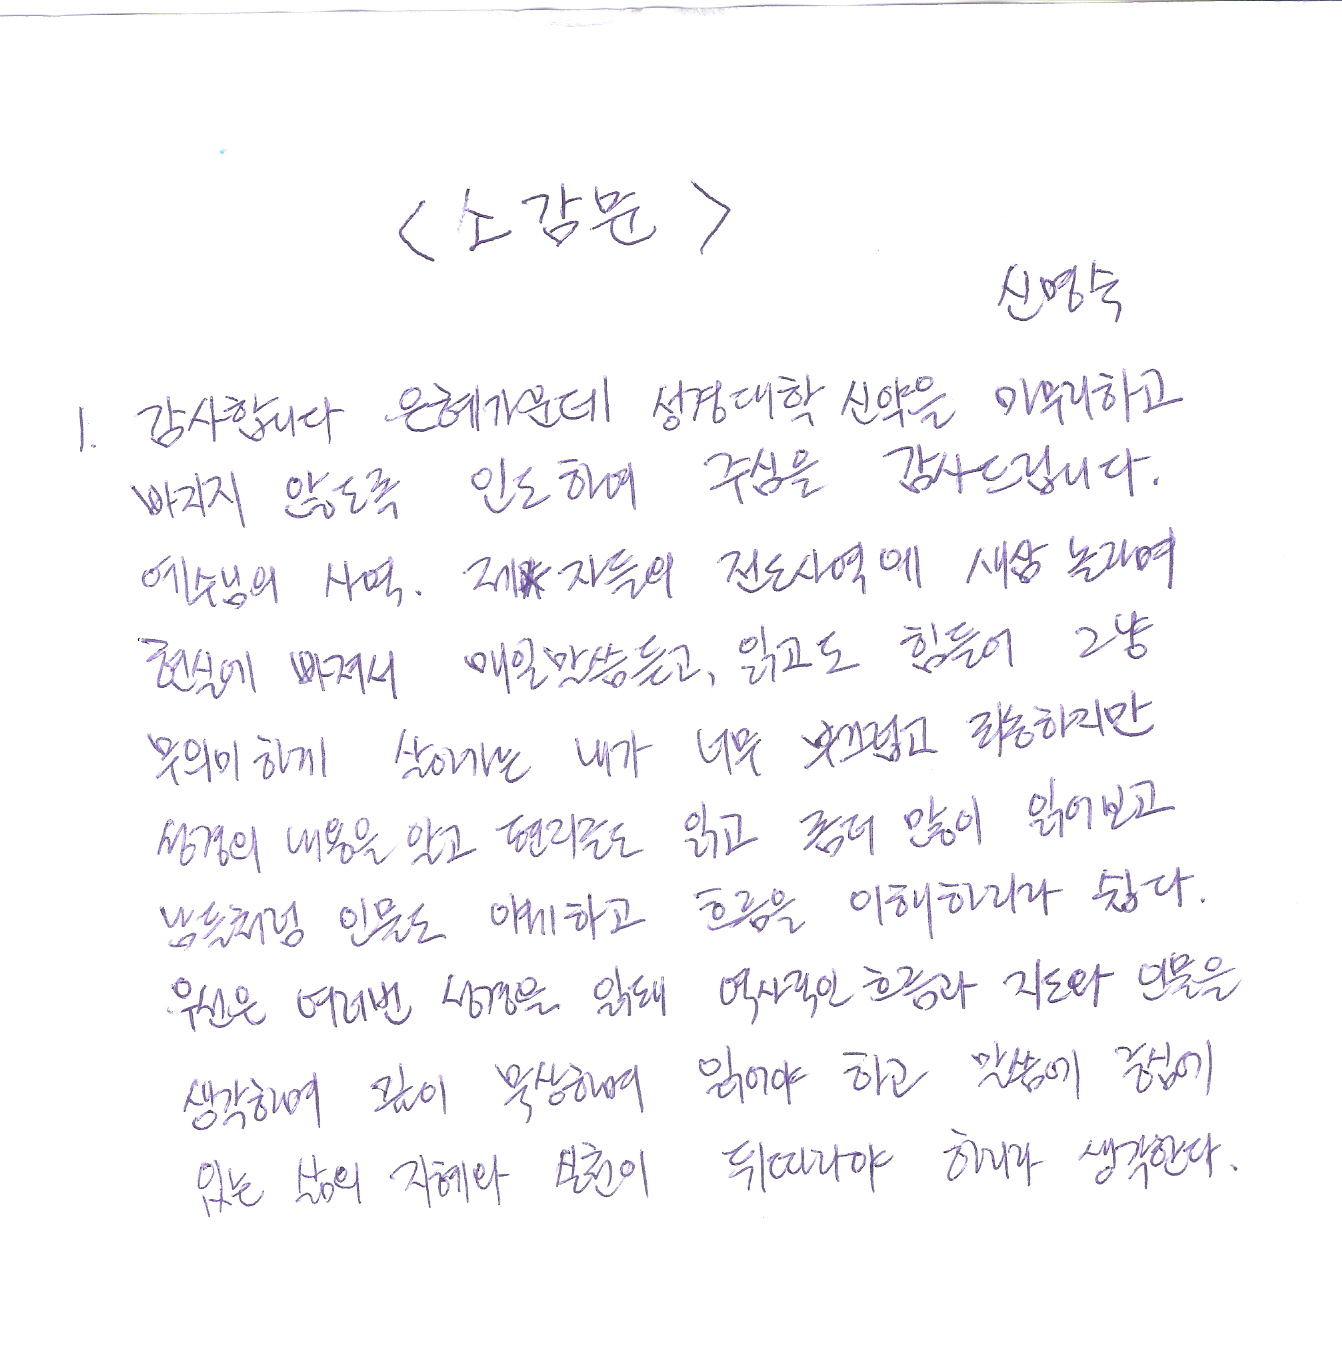 <소감문>
신명숙
1. 감사합니다 은혜가운데 성경대학 신약을 마무리하고
빠지지 않도록 인도하여 주심을 감사드립니다.
예수님의 사역. 제자들의 전도사역에 새삼 놀라며
현실에 빠져서 매일말씀듣고, 읽고도 힘들어 그냥
무의미하게 살아가는 내가 너무 부끄럽고 죄송하지만
성경의 내용을 알고 현리즌도 읽고 좀더 많이 읽어보고
남들처럼 인물도 얘기하고 흐름을 이해하리라 싶다.
우선은 여러번 성경을 읽되 역사적인 흐름과 지도와 인물을
생각하며 깊이 묵상하여 읽어야 하고 말씀에 중심에
있는 삶의 지혜와 실천이 뒤따라야 하리라 생각한다.